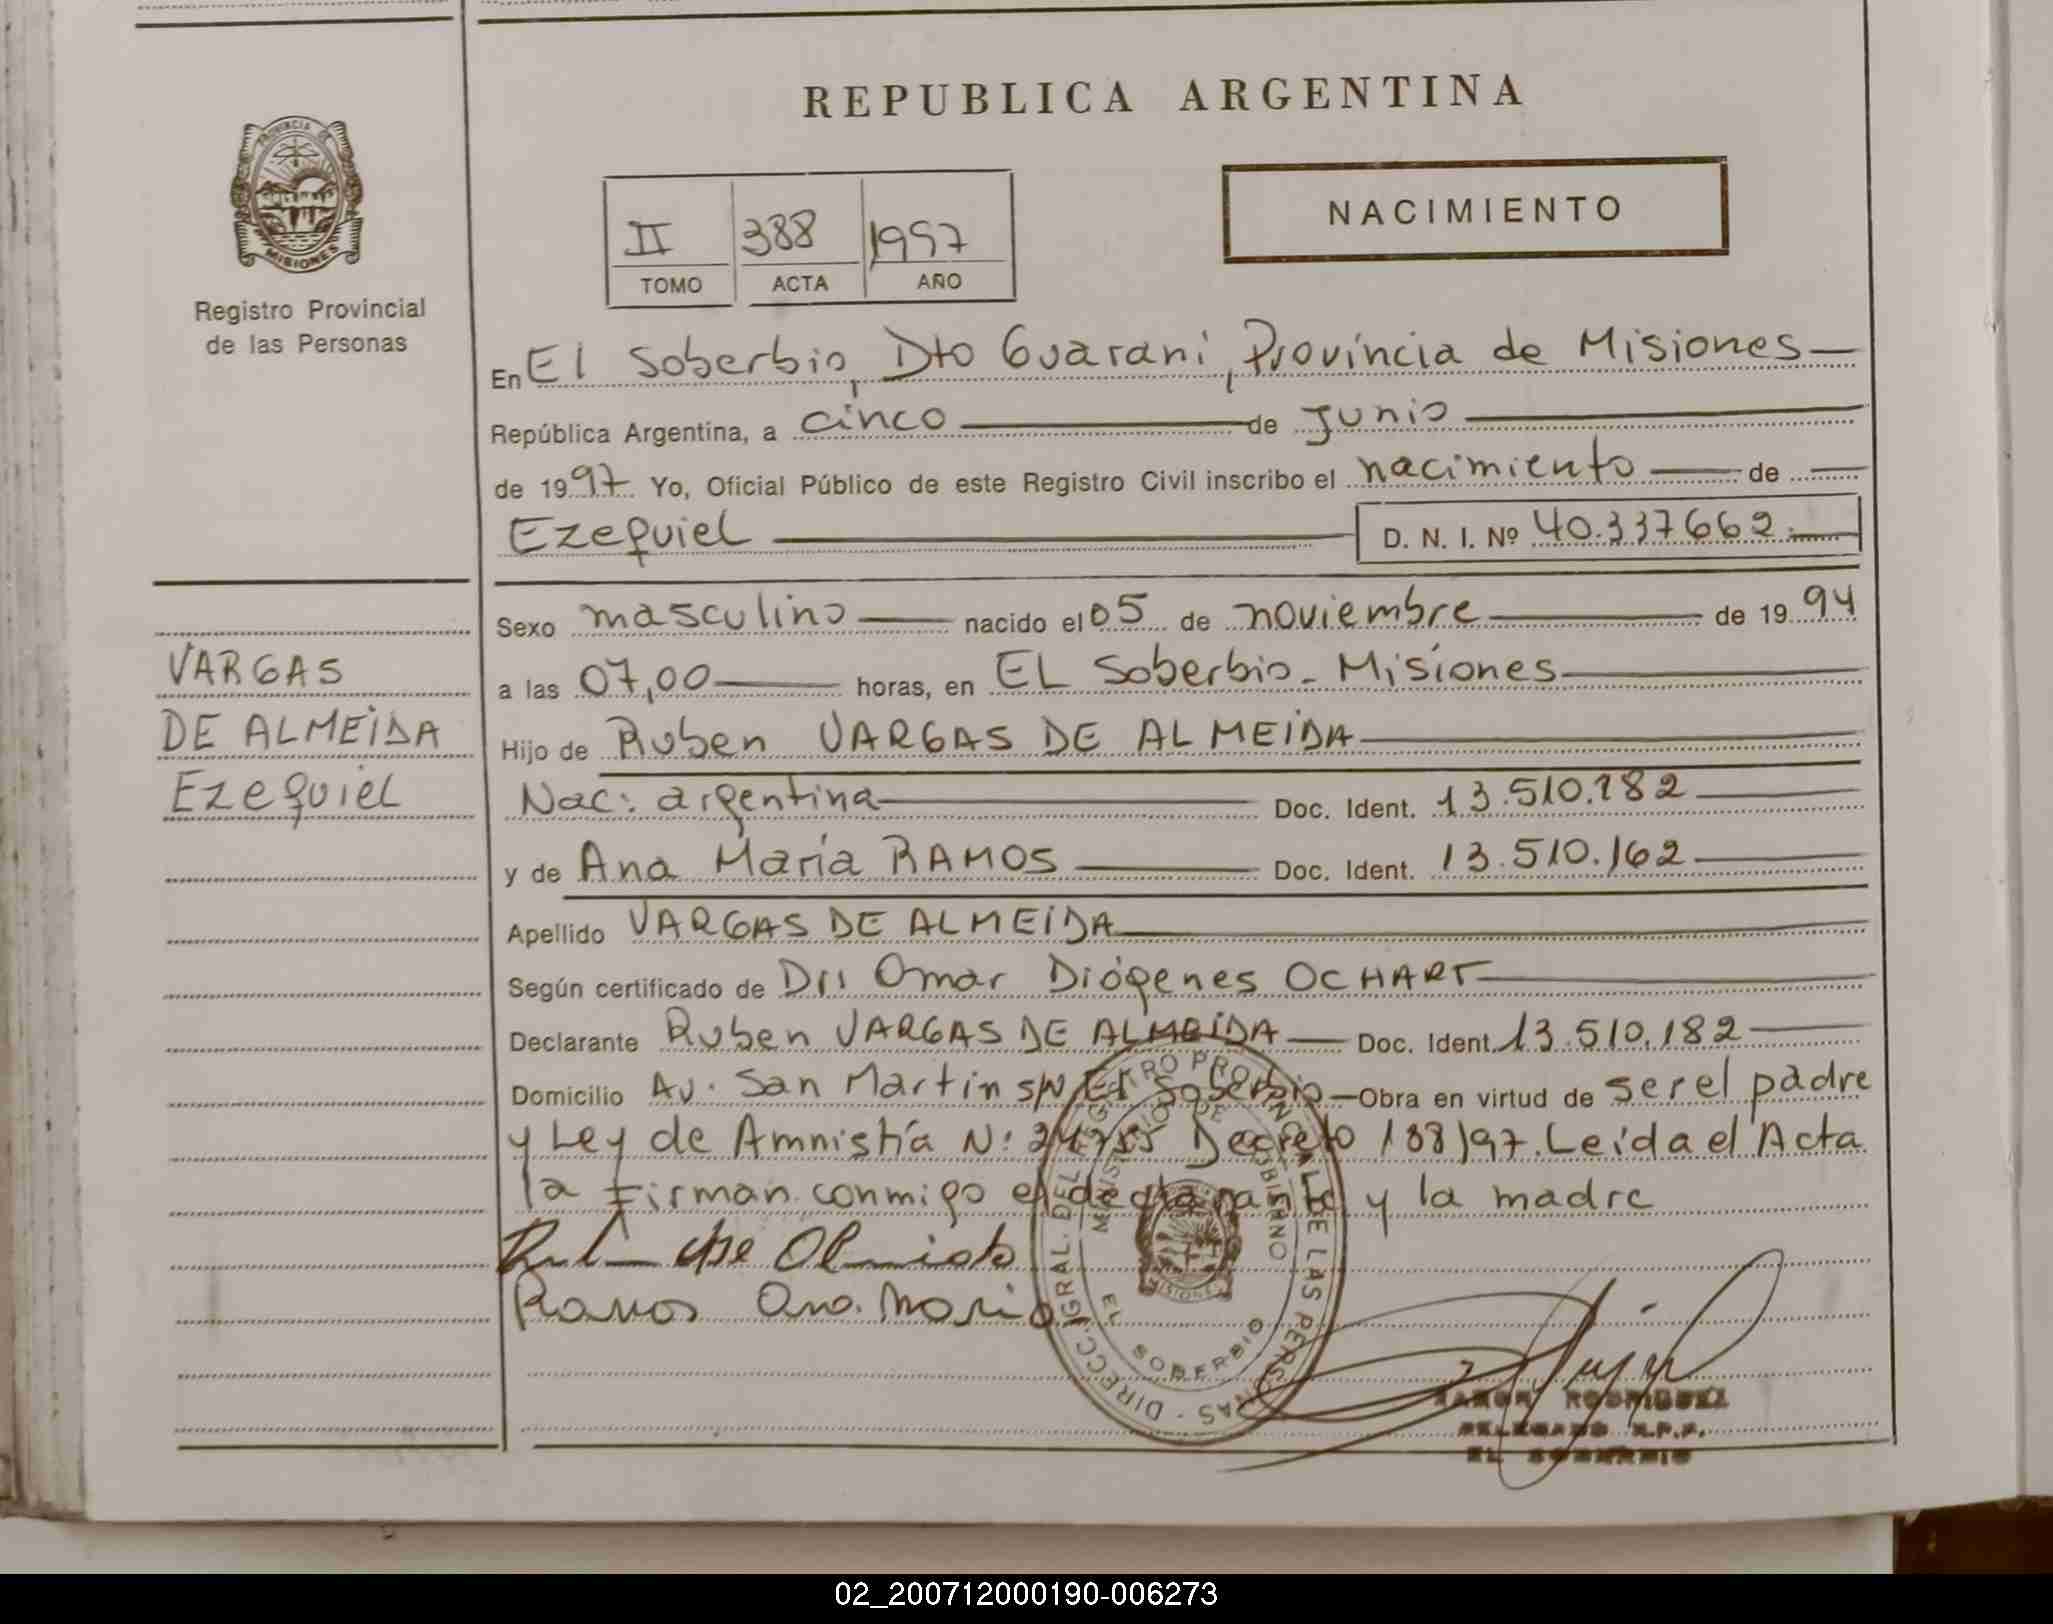 REPUBLICA ARGENTINA
PROVINCIA DE
MISIONES
Registro Provincial
de las Personas
II 388 1997
TOMO ACTA AÑO
NACIMIENTO
En El Soberbio, Dto Guarani, Provincia de Misiones
República Argentina, a cinco de Junio
de 1997 Yo, Oficial Público de este Registro Civil inscribo el nacimiento de
Ezequiel D. N. I. Nº 40.337662.
Sexo masculino nacido el 05 de noviembre de 1994
a las 07,00 horas, en EL Soberbio - Misiones
VARGAS
DE ALMEIDA
Ezequiel
Hijo de Ruben VARGAS DE ALMEIDA
Nac: argentina Doc. Ident. 13.510.182
y de Ana María RAMOS Doc. Ident. 13.510.162
Apellido VARGAS DE ALMEIDA
Según certificado de Dr: Omar Diógenes OCHART
Declarante Ruben VARGAS DE ALMEIDA Doc. Ident. 13.510.182
Domicilio Av. San Martin S/N El Soberbio Obra en virtud de ser el padre
y Ley de Amnistía N: 24755 Decreto 188/97. Leída el Acta
la firman conmigo el declarante y la madre
Ramos Ana Maria
DIRECC. GRAL. DEL REGISTRO PROVINCIAL DE LAS PERSONAS
MINISTERIO DE GOBIERNO
MISIONES
EL SOBERBIO
RODRIGUEZ
DELEGADO R.P.P.
EL SOBERBIO
02_200712000190-006273